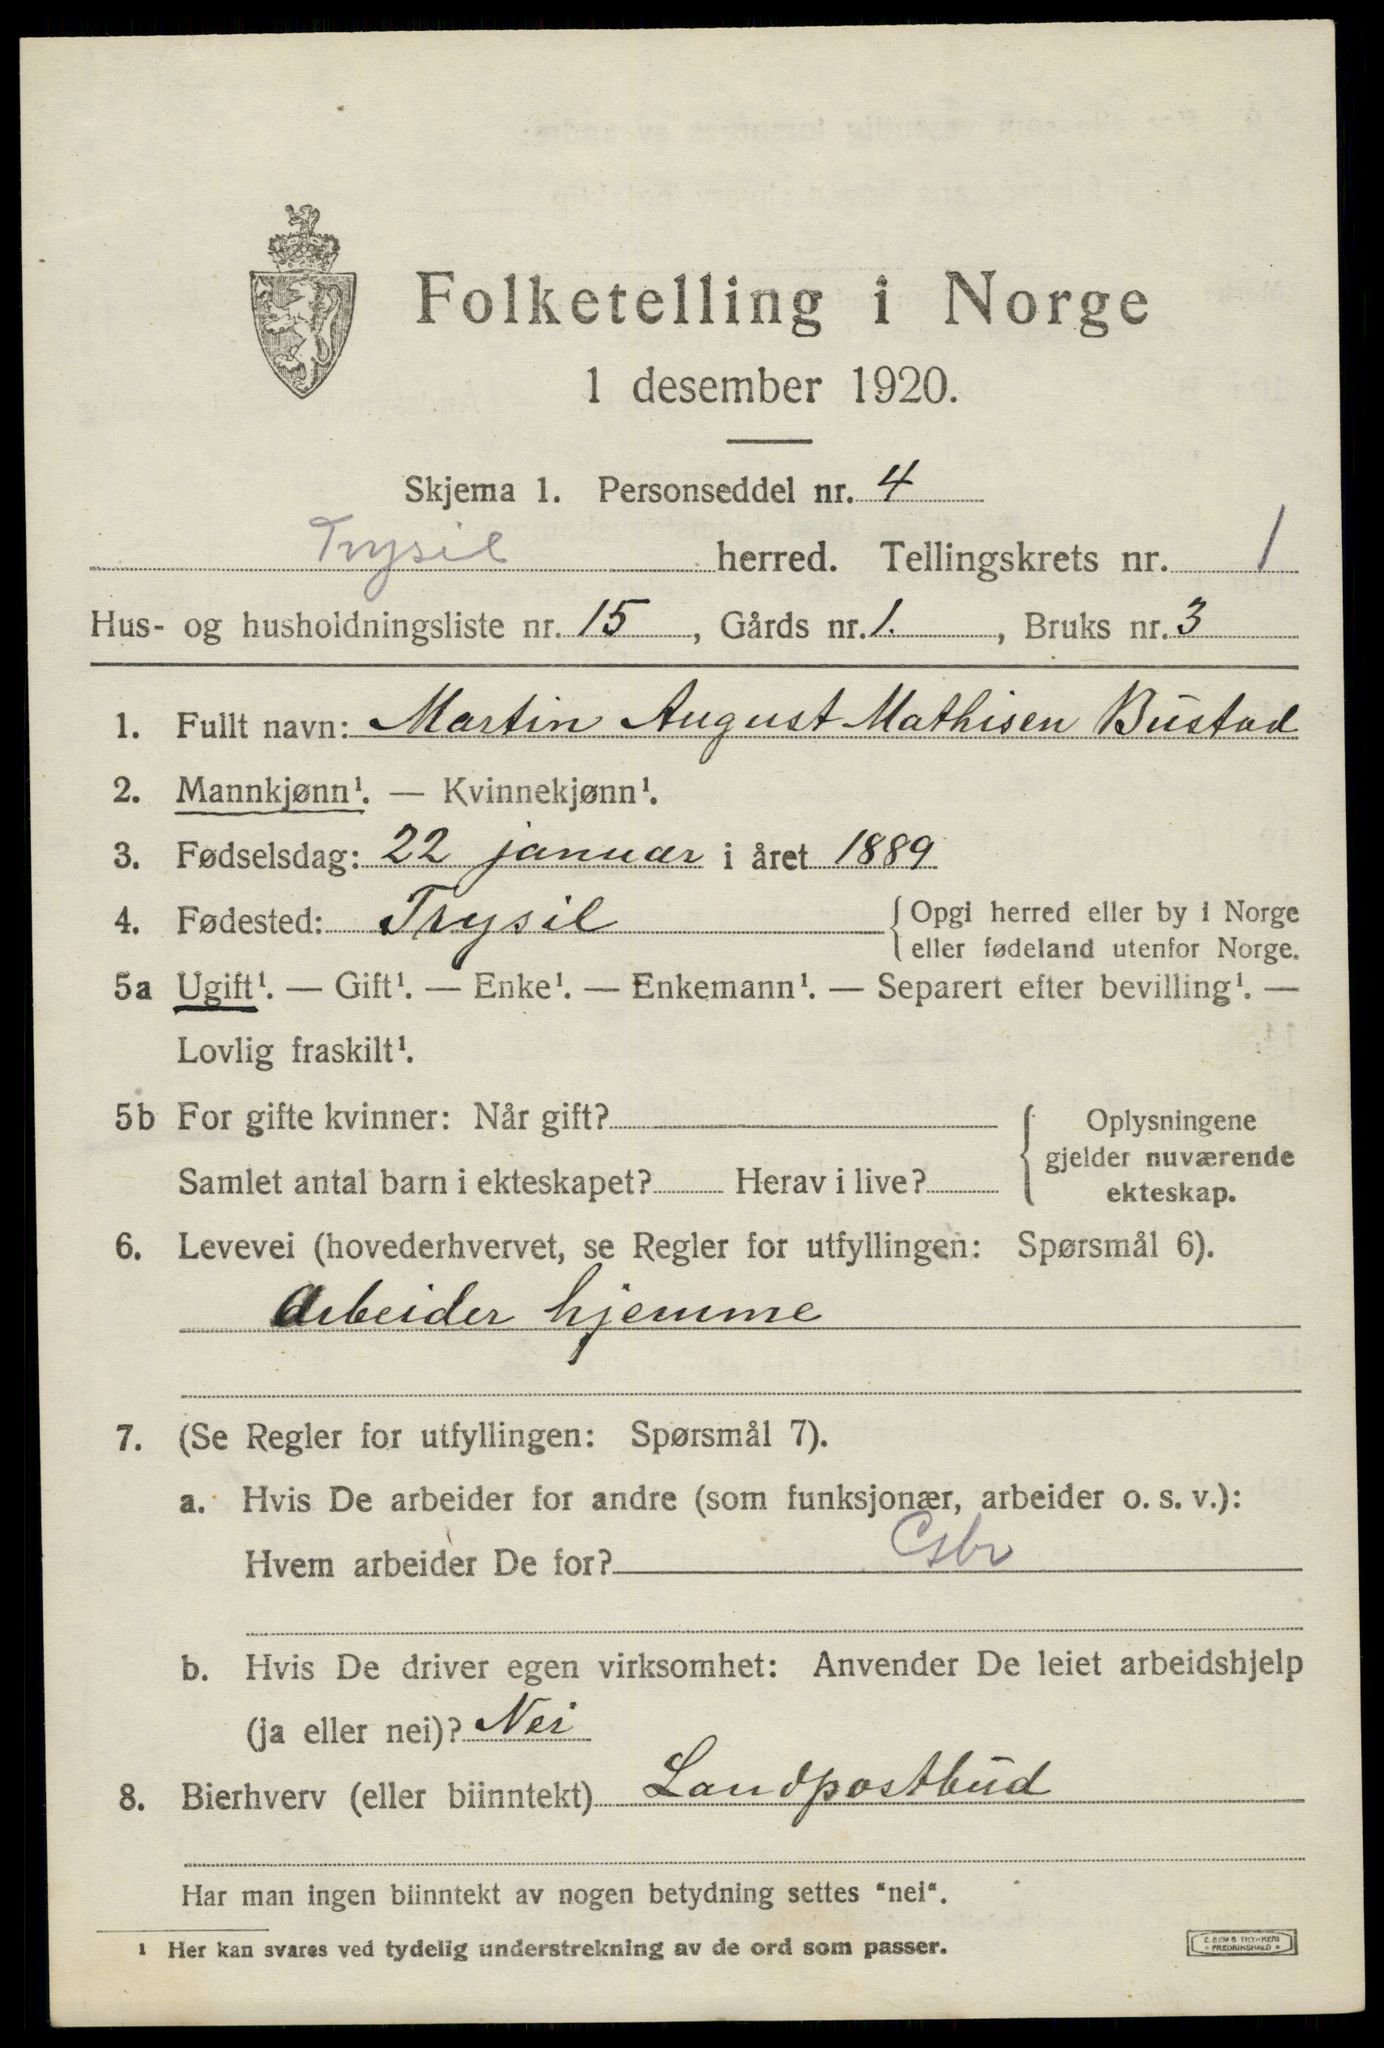 Folketelling i Norge
1 desember 1920.
Skjema 1. Personseddel nr. 4
Trysil herred. Tellingskrets nr. 1
Hus- og husholdningsliste nr. 15, Gårds nr. 1., Bruks nr. 3
1. Fullt navn: Martin August Mathisen Bustad
2. Mannkjønn¹. — Kvinnekjønn¹.
3. Fødselsdag: 22 januar i året 1889
4. Fødested: Trysil { Opgi herred eller by i Norge
eller fødeland utenfor Norge.
5a Ugift¹. — Gift¹. — Enke¹. — Enkemann¹. — Separert efter bevilling¹. —
Lovlig fraskilt¹.
5b For gifte kvinner: Når gift?
Samlet antal barn i ekteskapet? Herav i live?
{ Oplysningene
gjelder nuværende
ekteskap.
6. Levevei (hovederhvervet, se Regler for utfyllingen: Spørsmål 6).
Arbeider hjemme
7. (Se Regler for utfyllingen: Spørsmål 7).
a. Hvis De arbeider for andre (som funksjonær, arbeider o. s. v.):
Hvem arbeider De for?
b. Hvis De driver egen virksomhet: Anvender De leiet arbeidshjelp
(ja eller nei)? Nei
8. Bierhverv (eller biinntekt) Landpostbud
Har man ingen biinntekt av nogen betydning settes "nei".
¹ Her kan svares ved tydelig understrekning av de ord som passer.